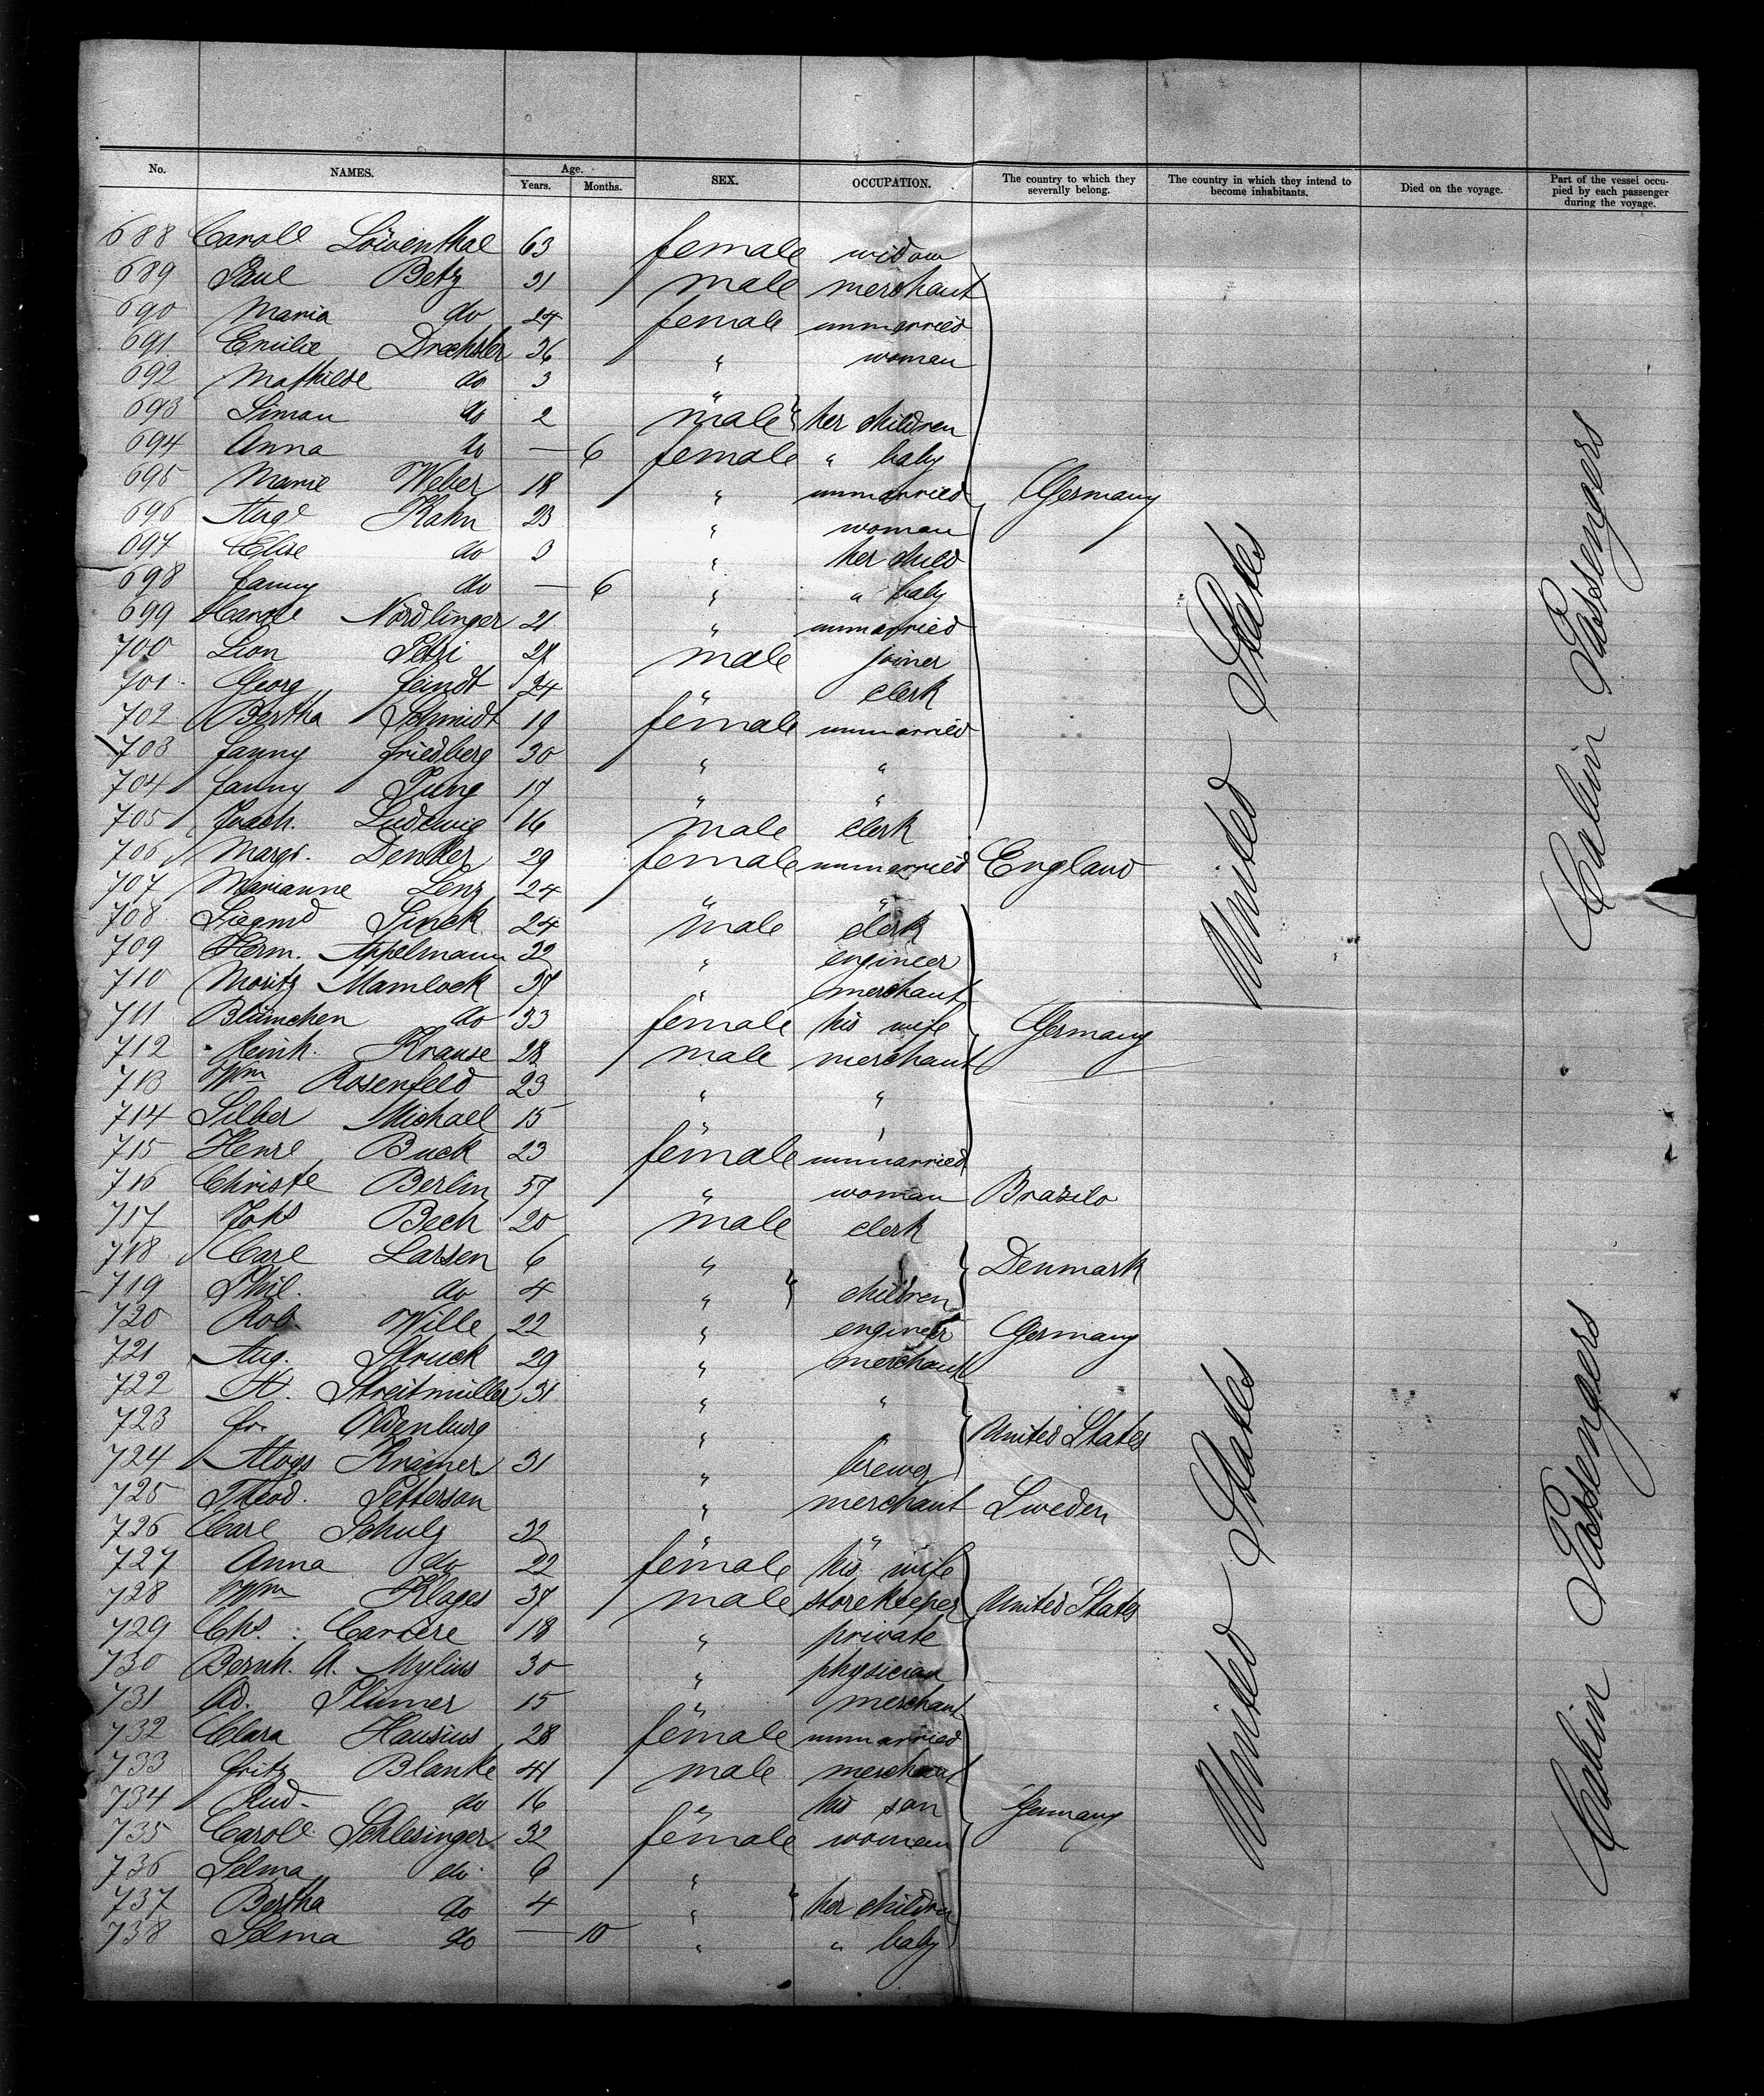 No. NAMES. Age. Years. Months. SEX. OCCUPATION. The country to which they severally belong. The country in which they intend to become inhabitants. Died on the voyage. Part of the vessel occupied by each passenger during the voyage.
688 Caroll Löwenthal 63 female widow
689 Paul Betz 31 male merchant
690 Maria do 24 female unmarried
691 Emilie Drechsler 36 " woman
692 Mathilde do 3 "
693 Simon do 2 male her children
694 Anna do — 6 female " baby
695 Marie Weber 18 " unmarried Germany
696 Auge Kahn 23 " woman
697 Elise do 3 " her child
698 Fanny do — 6 " " baby
699 Nördlinger 21 " unmarried
700 Lion Petri 28 male joiner
701 Georg Feindt 24 " clerk
702 Bertha Schmidt 19 female unmarried
703 Fanny Friedberg 30 " "
704 Fanny Jung 17 " "
705 Joach. Ludewig 16 male clerk
706 Margr. Denker 29 female unmarried England
707 Marianne Lenz 24 " "
708 Siegmd Sinek 24 male clerk
709 Herm. Appelmann 32 " engineer
710 Moritz Mamlock 37 " merchant
711 Blümchen do 33 female his wife Germany
712 Reinh. Krause 28 male merchant
713 Wm Rosenfeld 23 " "
714 Silber Michael 15 " "
715 Henre Buck 23 female unmarried
716 Christe Berlin 57 " woman Brazilo
717 Johs Bech 20 male clerk
718 Carl Larsen 6 " Denmark
719 Phil. do 4 " children
720 Rob Wille 22 " engineer Germany
721 Aug. Struck 29 " merchant
722 H. Streitmüller 31 " "
723 Fr. Oldenburg " United States
724 Aloys Krämer 31 " brewer
725 Theod. Petterson " merchant Sweden
726 Carl Schulz 32 " "
727 Anna do 22 female his wife
728 Wm Klages 37 male storekeeper United States
729 Chs. Carrere 18 " private
730 Bernh. A. Mylius 30 " physician
731 Ad. Plümer 15 " merchant
732 Clara Hausius 28 female unmarried
733 Fritz Blanke 41 male merchant
734 Rud- do 16 " his son Germany
735 Caroll Schlesinger 32 female woman
736 Selma do 6 "
737 Bertha do 4 " her children
738 Selma do — 10 " " baby
United States
United States
Cabin Passengers
Cabin Passengers